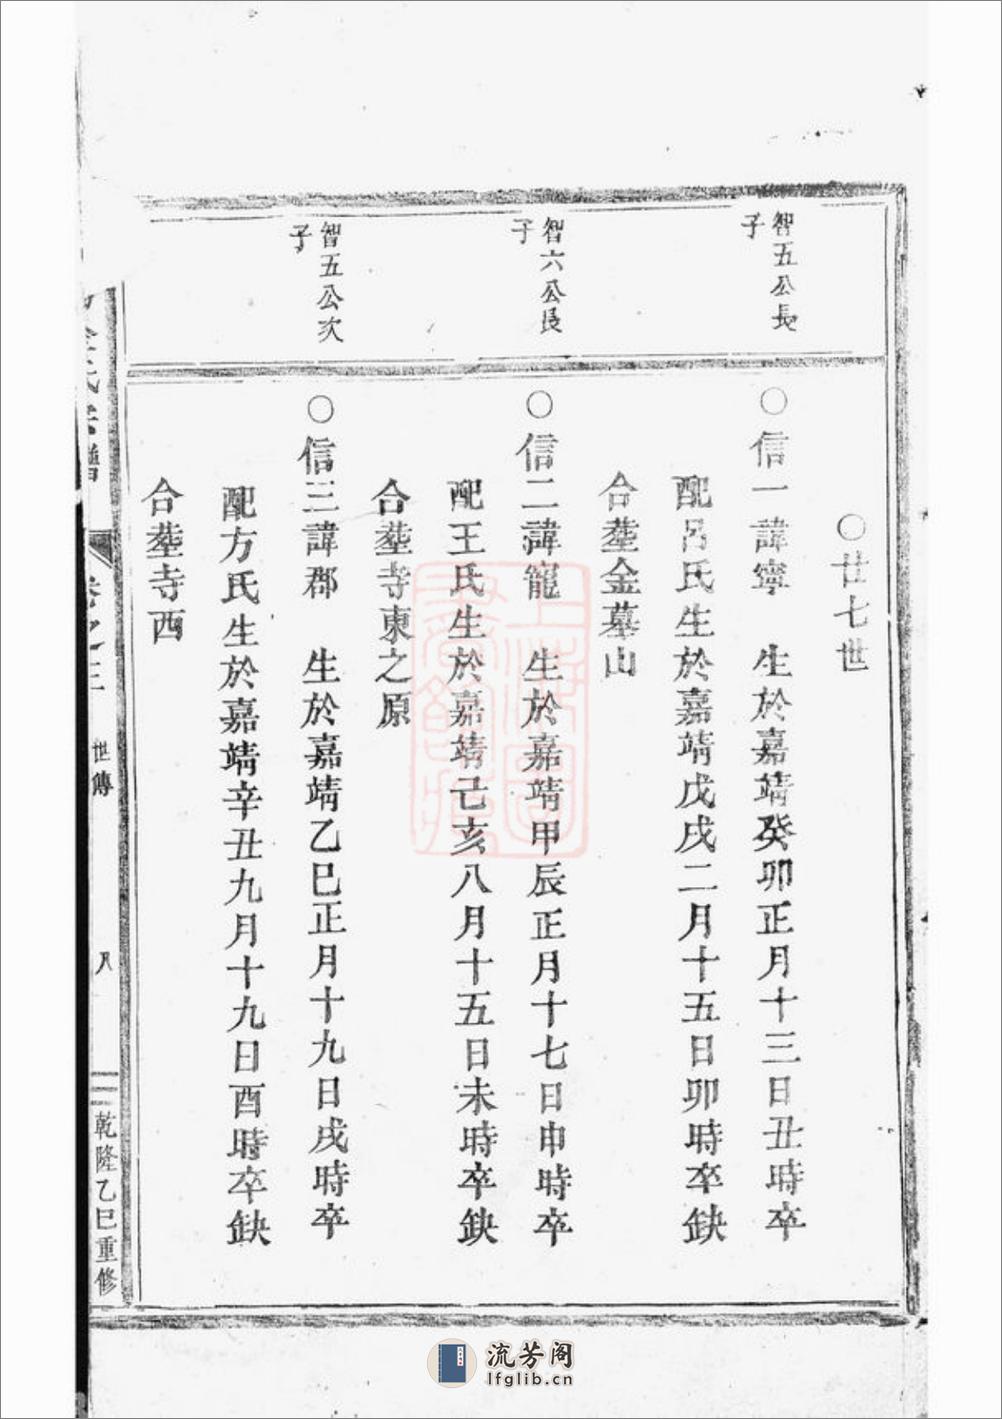 ○廿七世
智五公長
子
○信一諱寧　生於嘉靖癸卯正月十三日丑時卒
配呂氏生於嘉靖戊戌二月十五日卯時卒缺
合塟金墓山
智六公長
子
○信二諱寵　生於嘉靖甲辰正月十七日申時卒
配王氏生於嘉靖己亥八月十五日未時卒缺
合塟寺東之原
智五公次
子
○信三諱郡　生於嘉靖乙巳正月十九日戌時卒
配方氏生於嘉靖辛丑九月十九日酉時卒缺
合塟寺西
氏宗譜
卷之三
世傳
乾隆乙巳重修
上海圖
書館藏
流芳阁
lfglib.cn